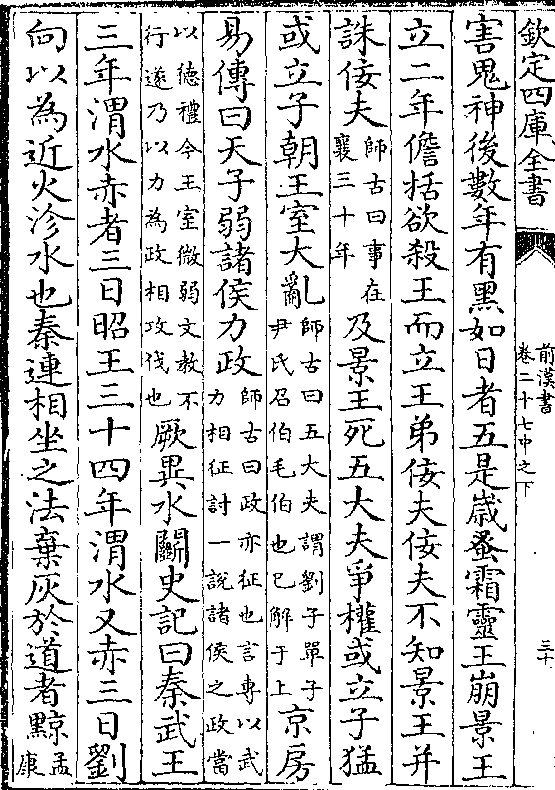 欽定四庫全書
前漢書
卷二十七中之下
三十
害鬼神後數年有黑如日者五是歲蚤霜靈王崩景王
立二年儋括欲殺王而立王弟佞夫佞夫不知景王并
誅佞夫師古曰事在襄三十年及景王死五大夫爭權或立子猛
或立子朝王室大亂師古曰五大夫謂劉子單子尹氏召伯毛伯也已解于上京房
易傳曰天子弱諸侯力政師古曰政亦征也言專以武力相征討一說諸侯之政當
以德禮今王室微弱文教不行遂乃以力為政相攻伐也厥異水鬬史記曰秦武王
三年渭水赤者三日昭王三十四年渭水又赤三日劉
向以為近火沴水也秦連相坐之法棄灰於道者黥孟康